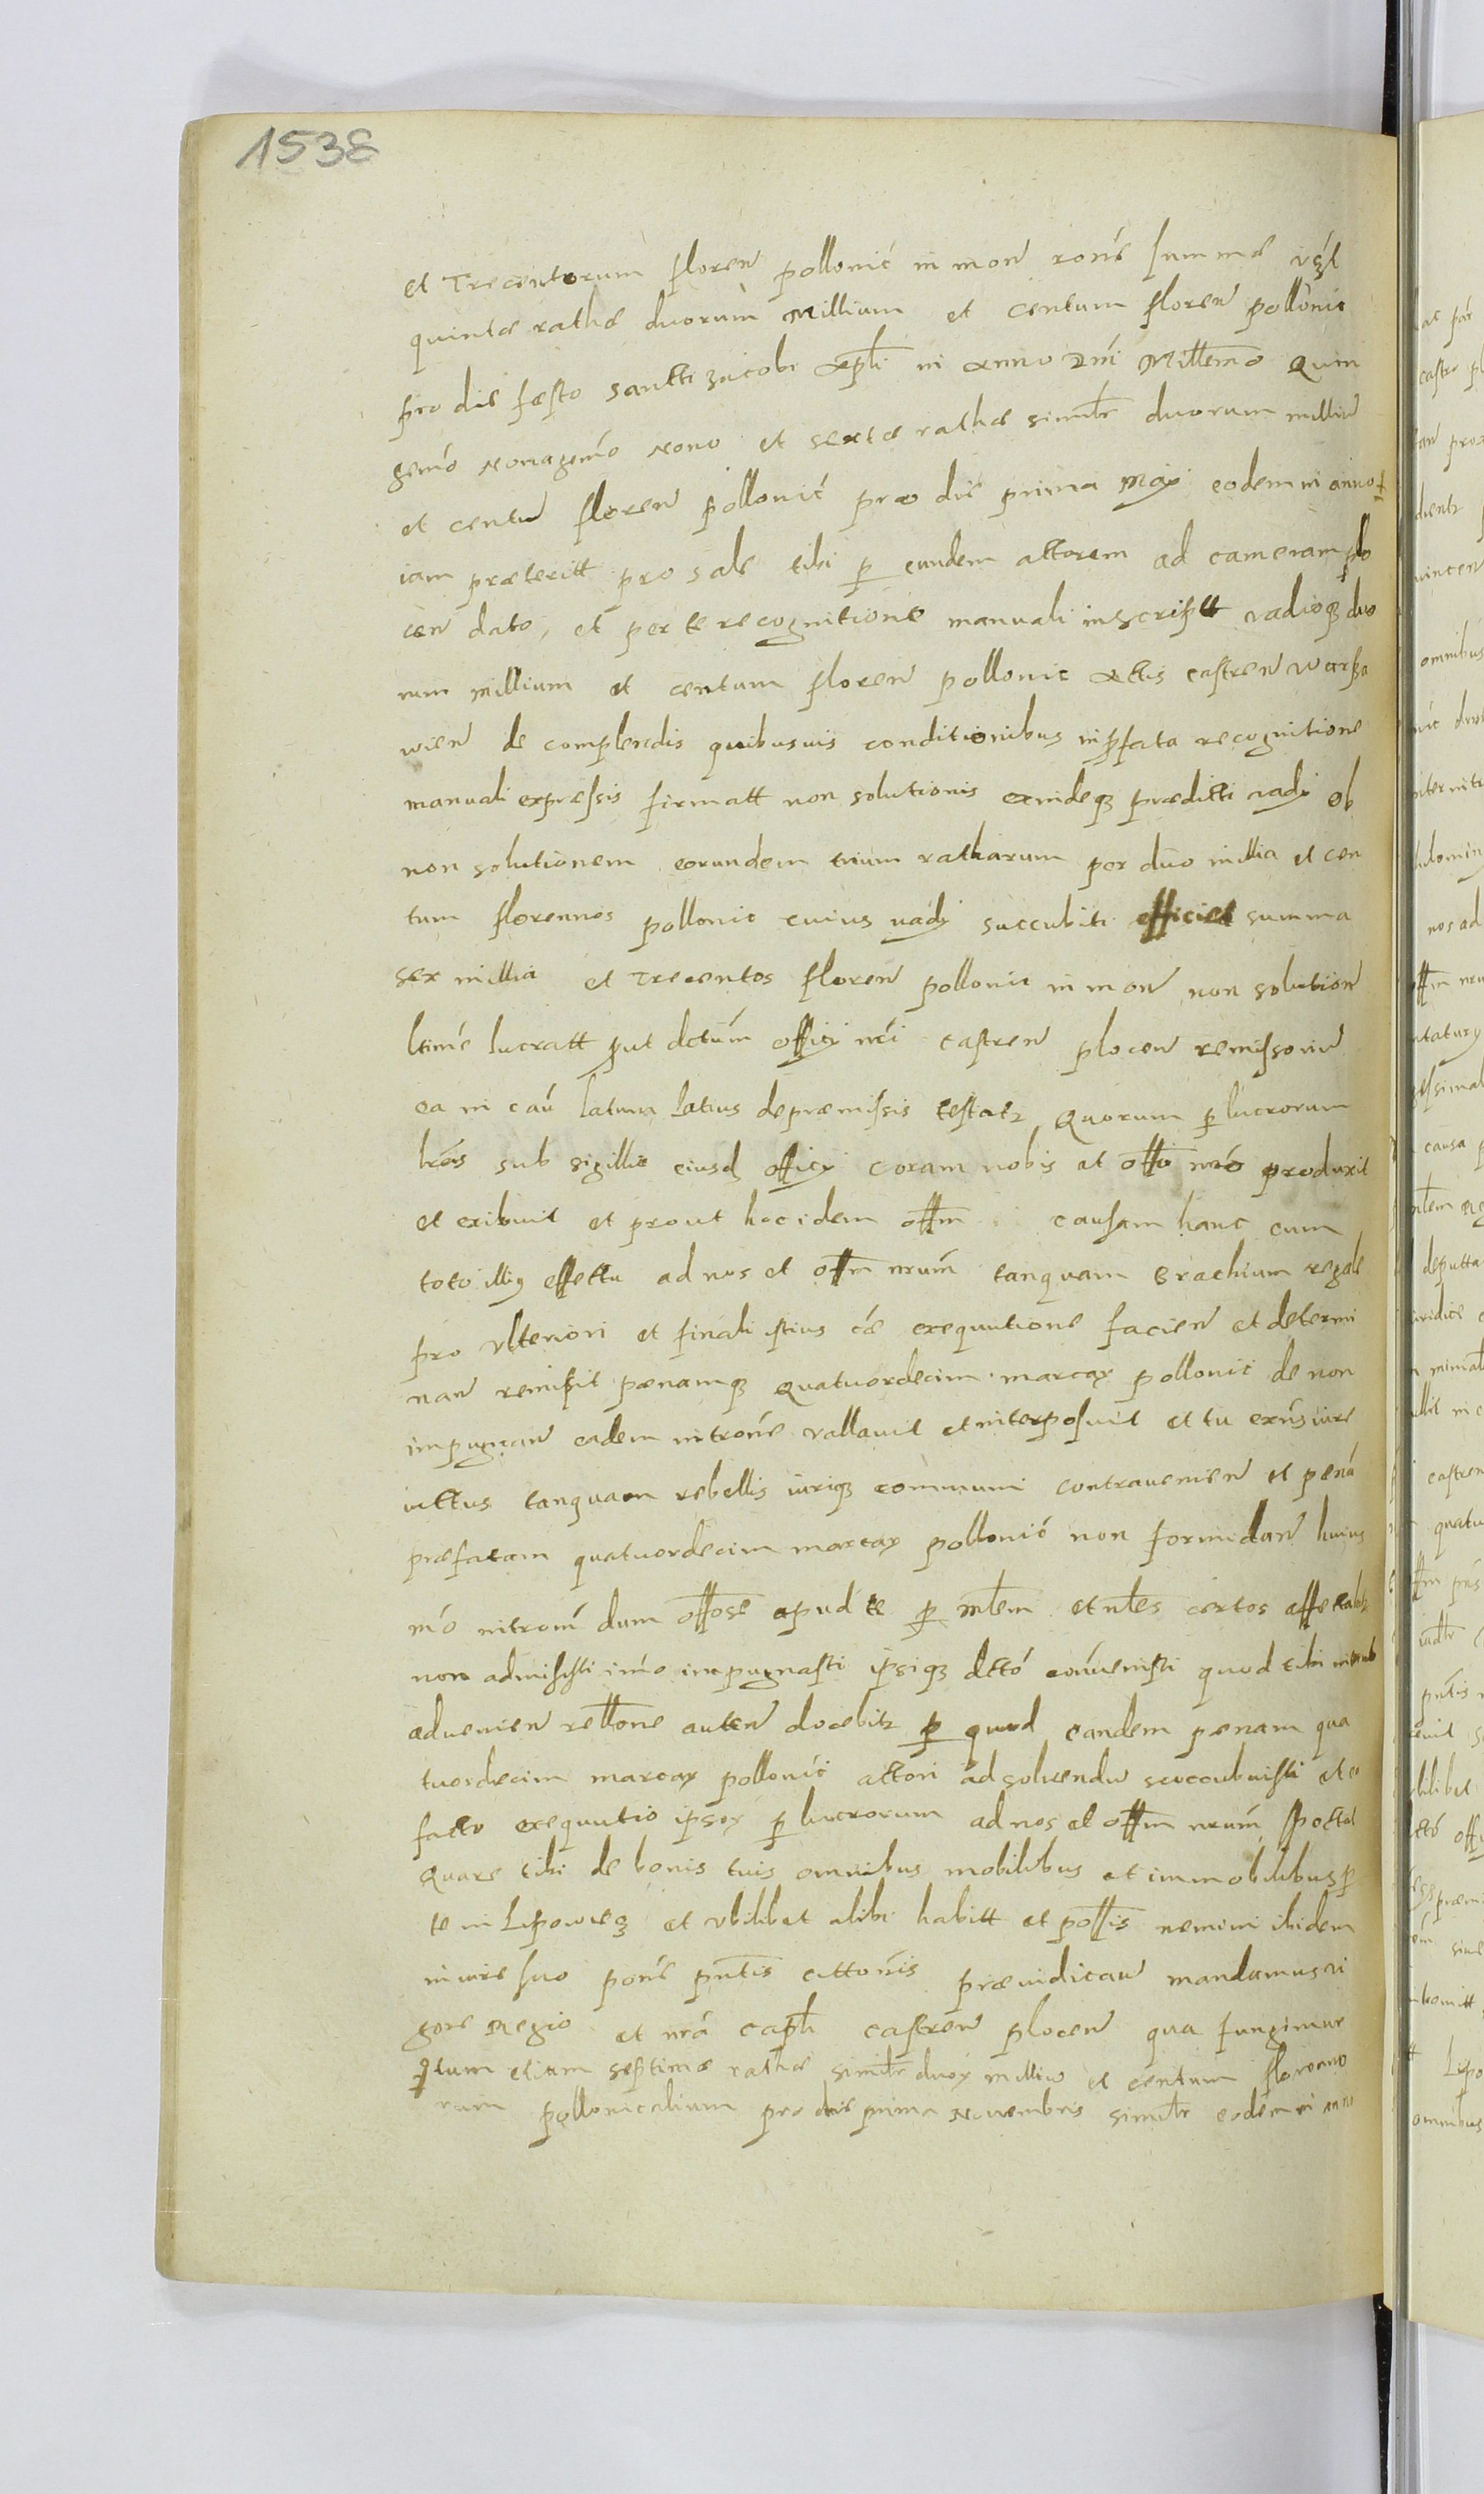 1538
et Trecentorum floren pollonic in mon rone summe vzl
quintae rathae duorum Millium et centum floren pollonic
pro die festo sancti Jacobi Apli in anno dni Millemo Quin
gemo Nonagemo Nono et sextae rathae similr duorum milliu
et centu floren pollonic pro die prima Maij eodem in anno
iam praeteritt pro sale tibi p eundem actorem ad cameram plo
cen dato, et per te recognitione manuali inscriptt vadioq duo
rum millium et centum floren pollonic Actis castren Warsza
wien de complendis quibusuis conditionibus in pfata recognitione
manuali expressis firmatt non solutionis exindeq praedicti vadij ob
non solutionem eorundem trium ratharum per duo millia et cen
tum florennos pollonic cuius vadij succubiti efficiet summa
sex millia et Trecentos floren pollonic in mon non solution
ltime lucratt put dctum officij nri castren plocen remissoriu
ea in cau latum latius de praemissis testatz Quorum p lucrorum
lras sub sigillo eiusd officij coram nobis et offo nro produxit
et exibuit et prout hoc idem offm causam hanc cum
toto illig effectu ad nos et offm nrum tanquam brachium regale
pro vlteriori et finali istius cae exequutione facien et determi
nan remisit paenamq quatuordecim marcax pollonic de non
impugnan eadem introne vallauit et interposuit et tu exns iure
victus tanquam rebellis iuriq communi contrauenien et pena
praefatam quatuordecim marcax pollonic non formidan huius
mo introm dum offose apud te p mlem et nbles certos affectabz
non admisisti imo impugnasti ipsiq dcto conuenisti quod tibi
aduenien rellone auten docebitz p quod eandem paenam qua
tuordecim marcax pollonic actori ad soluendu succubuisti et eo
facto exequutio ipsox p lucrorum ad nos et offm nrum spectat
Quare tibi de bonis tuis omnibus mobilibus et immobilibus p
te in Lipowiecz et vbilibet alibi habitt et possis nemini ibidem
in iure suo pone pntis cittonis praeiudican mandamus vi
gore Regio et nra caplt castren plocen qua fungimur
tum etiam septimae rathae similr duox milliu et centum floreno
rum pollonicalium pro die prima Nouembris similr eodem in anno